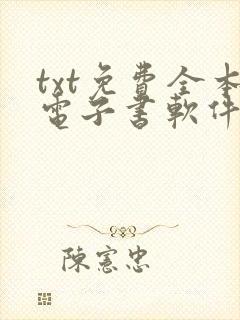 txt免費全本
電子書軟件
陳憲忠